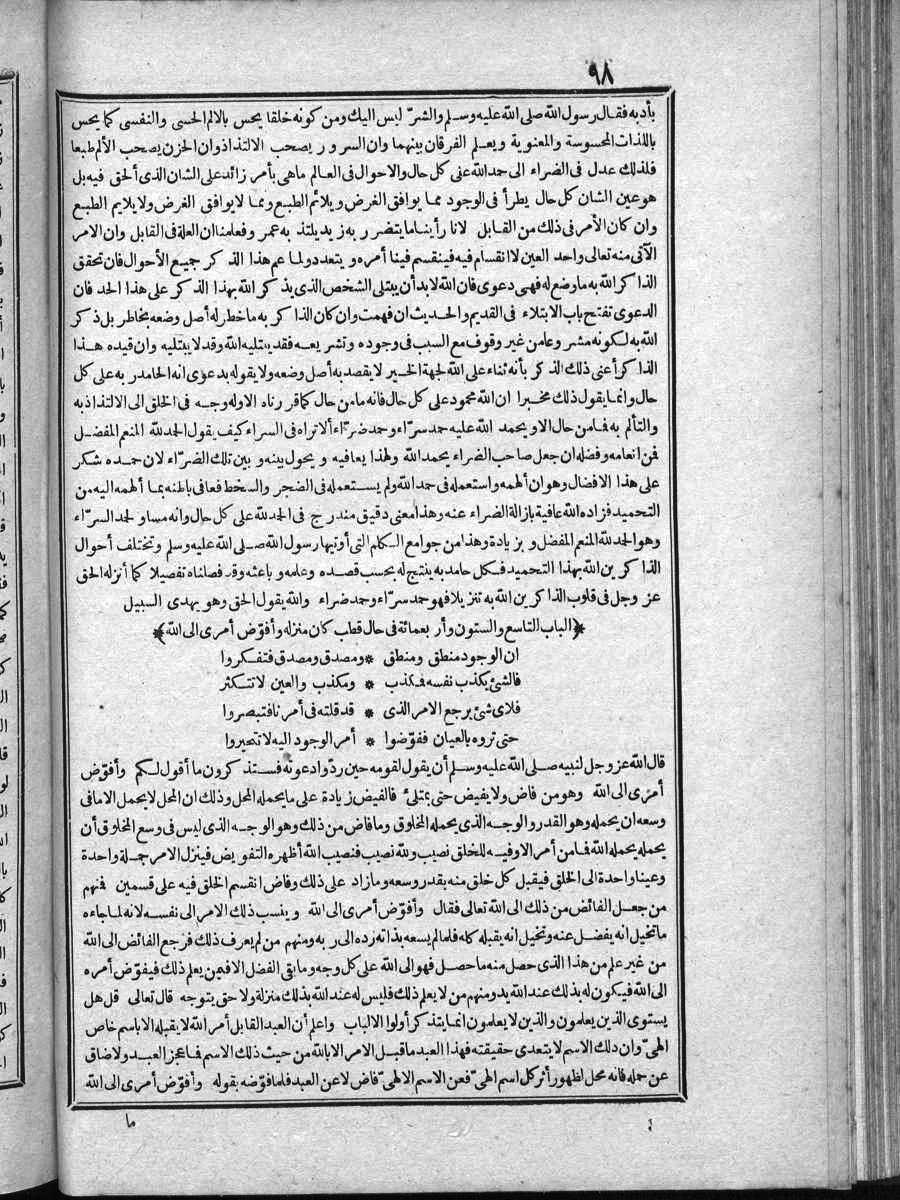 ٩٨
بأدبه فقال رسول الله صلى الله عليه وسلم والشرّ ليس اليك ومن كونه خلقا يحس بالالم الحسى والنفسى كما يحس
باللذات المحسوسة والمعنوية ويعلم الفرقان بينهما وان السرور يصحب الالتذاذ وان الحزن يصحب الألم طبعا
فلذلك عدل فى الضراء الى حمد الله على كل حال والاحوال فى العالم ماهى بأمر زائد على الشان الذى ألحق فيه بل
هو عين الشان كل حال يطرأ فى الوجود مما يوافق الغرض ويلائم الطبع ومما لا يوافق الغرض ولا يلايم الطبع
وان كان الأمر فى ذلك من القابل لانا رأينا ما يتضرر به زيد يلتذ به عمر وفعلمنا ان العلة فى القابل وان الامر
الآتى منه تعالى واحد العين لا انقسام فيه فينقسم فينا أمره ويتعدد ولما عم هذا الذكر جميع الأحوال فان تحقق
الذاكر الله به ما وضع له فهى دعوى فان الله لا بد أن يبتلى الشخص الذى يذكر الله بهذا الذكر على هذا الحد فان
الدعوى تفتح باب الابتلاء فى القديم والحديث ان فهمت وان كان الذاكر به ما خطر له أصل وضعه بخاطر بل ذكر
الله به لكونه مشروعا من غير وقوف مع السبب فى وجوده وتشريعه فقد يبتليه الله وقد لا يبتليه وان قيده هذا
الذاكر أعنى ذلك الذكر بأنه ثناء على الله لجهة الخير لا يقصد به أصل وضعه ولا يقوله بدعوى انه الحامد ربه على كل
حال وانما يقول ذلك مخبرا ان الله محمود على كل حال فانه ما من حال كما قررناه الا وله وجه فى الخلق الى الالتذاذ به
والتألم به فما من حال الا ويحمد الله عليه حمد سرّاء وحمد ضرّاء ألا تراه فى السراء كيف يقول الحمد لله المنعم المفضل
فمن انعامه وفضله ان جعل صاحب الضراء يحمد الله ولهذا يعافيه ويحول بينه وبين تلك الضرّاء لان حمده شكر
على هذا الافضال وهو ان ألهمه واستعمله فى حمد الله ولم يستعمله فى الضجر والسخط فعافى باطنه بما ألهمه اليه من
التحميد فزاده الله عافية بازالة الضراء عنه وهذا معنى دقيق مندرج فى الحمد لله على كل حال وانه مساو لحمد السرّاء
وهو الحمد لله المنعم المفضل ويزيادة وهذا من جوامع الكلم التى أوتيها رسول الله صلى الله عليه وسلم وتختلف أحوال
الذاكرين الله بهذا التحميد فكل حامد به ينتج له بحسب قصده وعلمه وباعثه وقد فصلناه تفصيلا كما أنزله الحق
عز وجل فى قلوب الذاكرين الله به تنزيلا فهو حمد سرّاء وحمد ضراء والله يقول الحق وهو يهدى السبيل
﴿الباب التاسع والستون وأربعمائة فى حال قطب كان منزله وأفوّض أمرى الى الله﴾
ان الوجود منطق ومنطق * ومصدق ومصدق فتفكروا
فالشئ يكذب نفسه فمكذب * ومكذب والعين لا تتكثر
فلاى شئ يرجع الامر الذى * قد قلته فى أمرنا فتبصروا
حتى تروه بالعيان ففوّضوا * أمر الوجود اليه لا تتحيروا
قال الله عز وجل لنبيه صلى الله عليه وسلم أن يقول لقومه حين ردّوا دعونه فستذكرون ما أقول لكم وأفوّض
أمرى الى الله وهو من فاض ولا يفيض حتى يمتلئ فالفيض زيادة على ما يحمله المحل وذلك ان المحل لا يحمل الا ما فى
وسعه ان يحمله وهو القدر والوجه الذى يحمله المخلوق وما فاض من ذلك وهو الوجه الذى ليس فى وسع المخلوق أن
يحمله يحمله الله فما من أمر الا وفيه للخلق نصيب ولله نصيب فنصيب الله أظهره التفويض فينزل الامر جملة واحدة
وعينا واحدة الى الخلق فيقبل كل خلق منه بقدر وسعه وما زاد على ذلك وفاض انقسم الخلق فيه على قسمين فمنهم
من جعل الفائض من ذلك الى الله تعالى فقال وأفوّض أمرى الى الله وينسب ذلك الامر الى نفسه لانه لما جاءه
ما تخيل انه يفضل عنه وتخيل انه يقبله كله فلما لم يسعه بذاته رده الى ربه ومنهم من لم يعرف ذلك فرجع الفائض الى الله
من غير علم من هذا الذى حصل منه ما حصل فهو الى الله على كل وجه وما بقى الفضل الا فيمن يعلم ذلك فيفوّض أمره
الى الله فيكون له بذلك عند الله يد ومنهم من لا يعلم ذلك فليس له عند الله بذلك منزلة ولا حق يتوجه قال تعالى قل هل
يستوى الذين يعلمون والذين لا يعلمون انما يتذكر أولوا الالباب واعلم أن العبد القابل أمر الله لا يقبله الا باسم خاص
الهىّ وان ذلك الاسم لا يتعدى حقيقته فهذا العبد ما قبل الامر الا بالله من حيث ذلك الاسم فما عجز العبد ولا ضاق
عن حمله فانه محل لظهور أثر كل اسم الهىّ فعن الاسم الالهىّ فاض لا عن العبد فلما فوّضه بقوله وأفوّض أمرى الى الله
ما